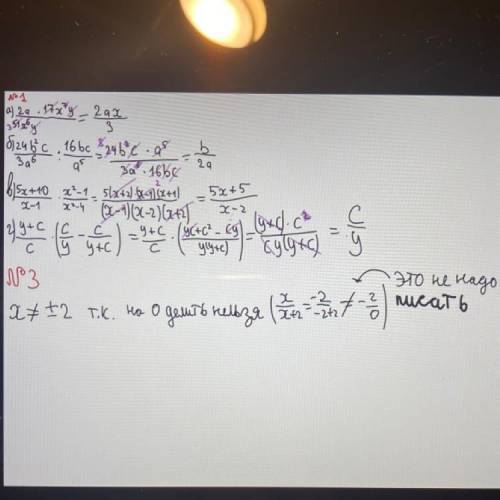 №1
а) (2a · 17x⁷y)/(51x⁶y) = 2ax/3
б) 24b²c/3a⁶ : 16bc/a⁵ = (24b²c · a⁵)/(3a⁶ · 16bc) = b/2a
в) (5x+10)/(x-1) · (x²-1)/(x²-4) = (5(x+2)(x-1)(x+1))/((x-1)(x-2)(x+2)) = (5x+5)/(x-2)
г) (y+c)/c · (c/y - c/(y+c)) = (y+c)/c · ((yc+c²-cy)/(y(y+c))) = ((y+c) · c²)/(cy(y+c)) = c/y
№3
x ≠ ±2 т.к. на 0 делить нельзя (x/(x+2) = -2/(-2+2) ≠ -2/0) это не надо писать